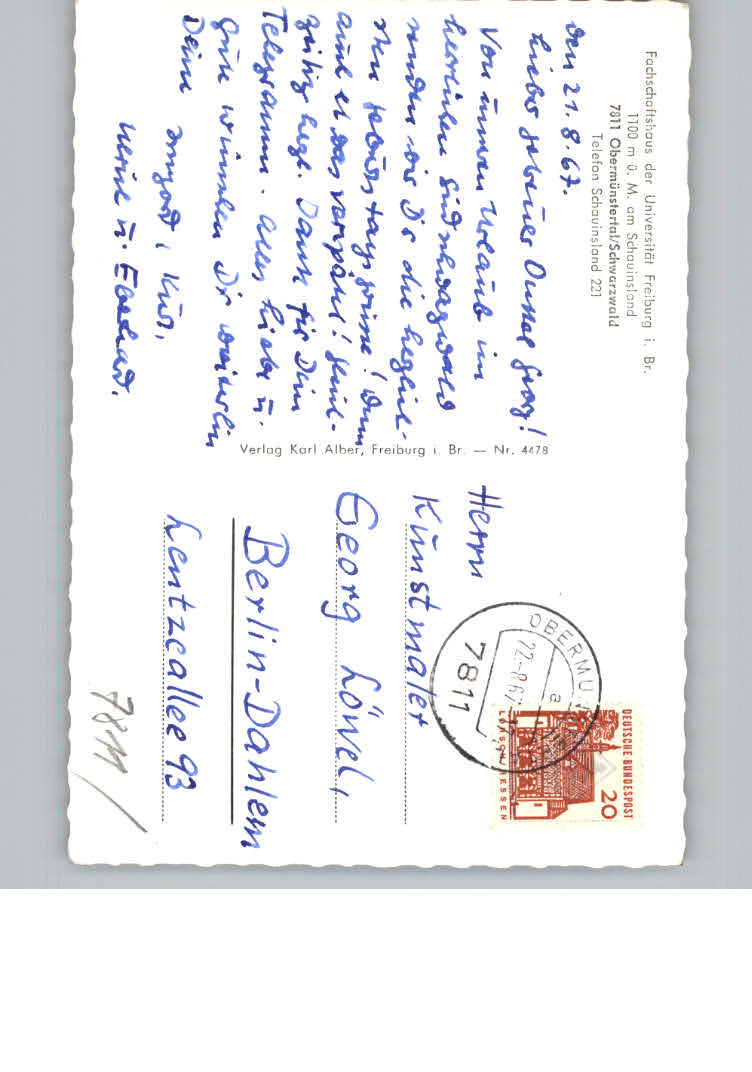 Fachschaftshaus der Universität Freiburg i. Br.
1100 m ü. M. am Schauinsland
7811 Obermünstertal/Schwarzwald
Telefon Schauinsland 221
den 21.8.67.
Lieber guter Onkel Georg!
Von unserm Urlaub im
herrlichen Südschwarzwald
senden wir Dir die herzlich-
sten Geburtstagsgrüsse! Wenn
auch etwas verspätet!
Dank für Dein
Telegramm. Alles Liebe u.
Gute wünschen Dir weiterhin
Deine
Irmgard, Kurt,
u. Eberhard.
Verlag Karl Alber, Freiburg i. Br. — Nr. 4478
Herrn
Kunstmaler
Georg Löwel,
Berlin-Dahlem
Lentzeallee 93
7811/
OBERMÜNSTERTAL
a
22.-8.67
7811
DEUTSCHE BUNDESPOST
20
LORSCH/HESSEN